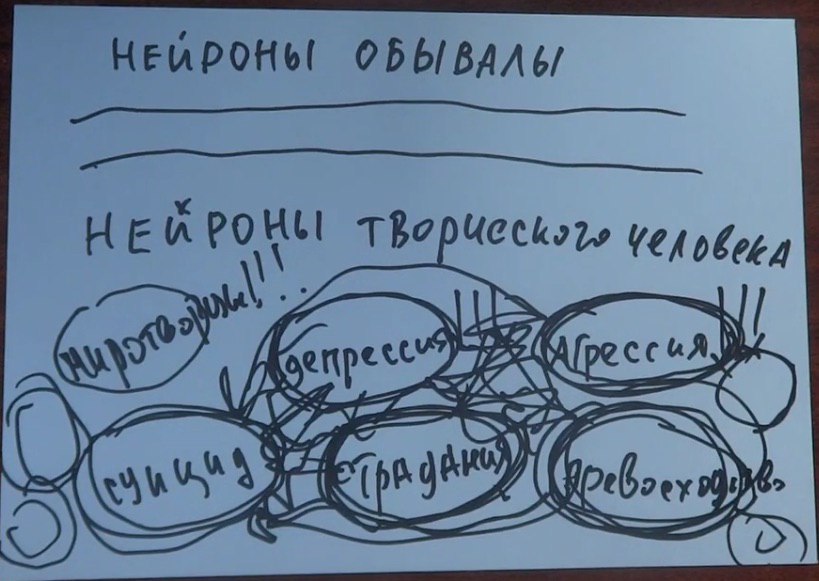 НЕЙРОНЫ ОБЫВАЛЫ
НЕЙРОНЫ ТВОРЧЕСКОГО ЧЕЛОВЕКА
!!!
депрессия!!!
АГРЕССИЯ!!!
СУИЦИД
СТРАДАНИЯ
превосходство